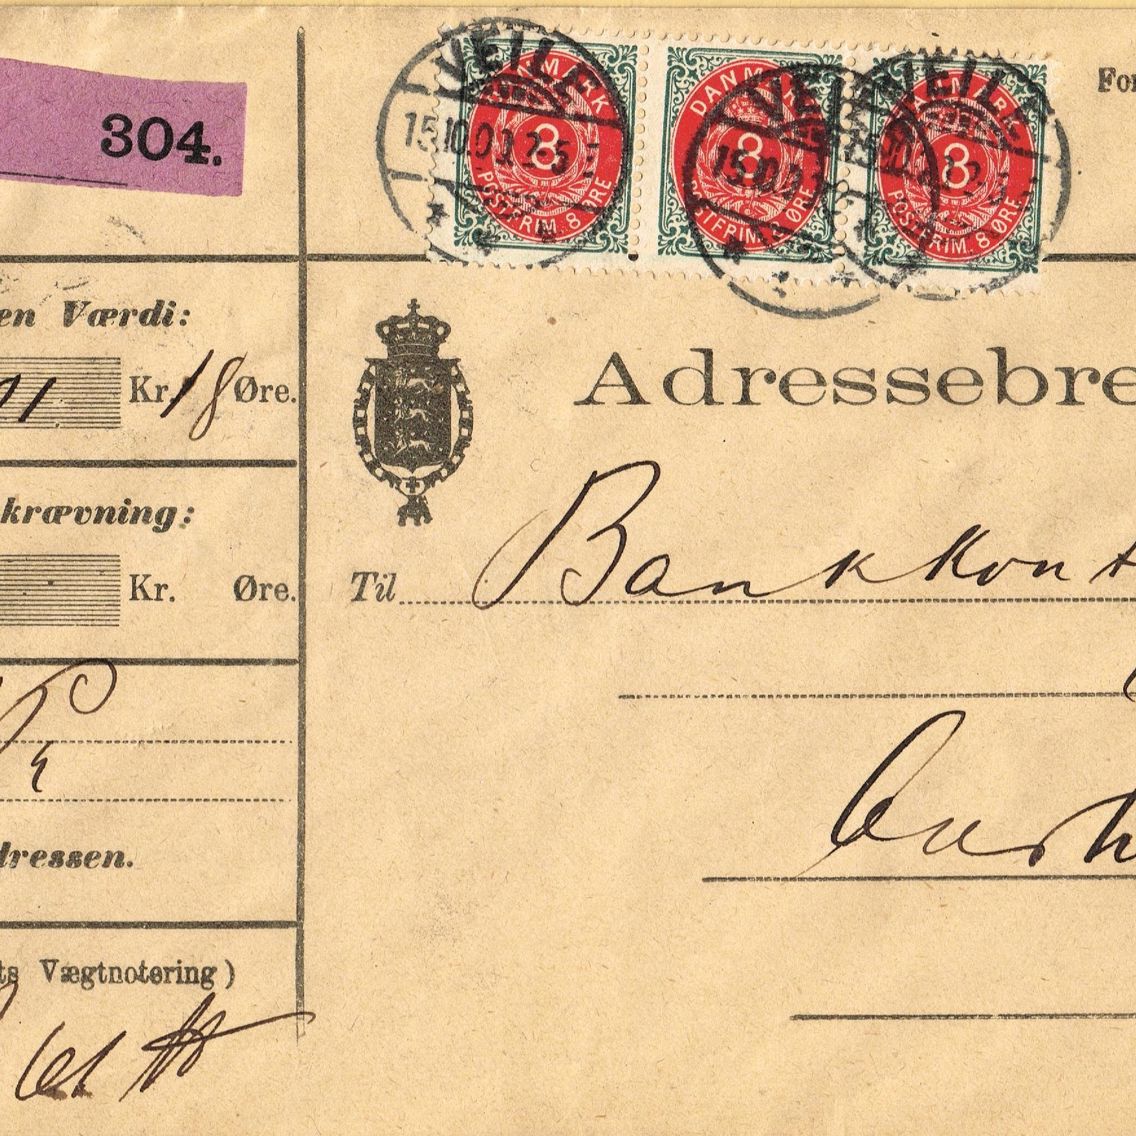 304.
VEJLE
15.10.00. 2-5 E
DANMARK
8
POSTFRIM. 8 ØRE
VEJLE
DANMARK
8
POSTFRIM. 8 ØRE
VEJLE
DANMARK
8
POSTFRIM. 8 ØRE.
For
en Værdi:
Kr. 18 Øre.
Adressebre
krævning:
Kr. Øre.
Til Bankkont
dressen.
ts Vægtnotering)